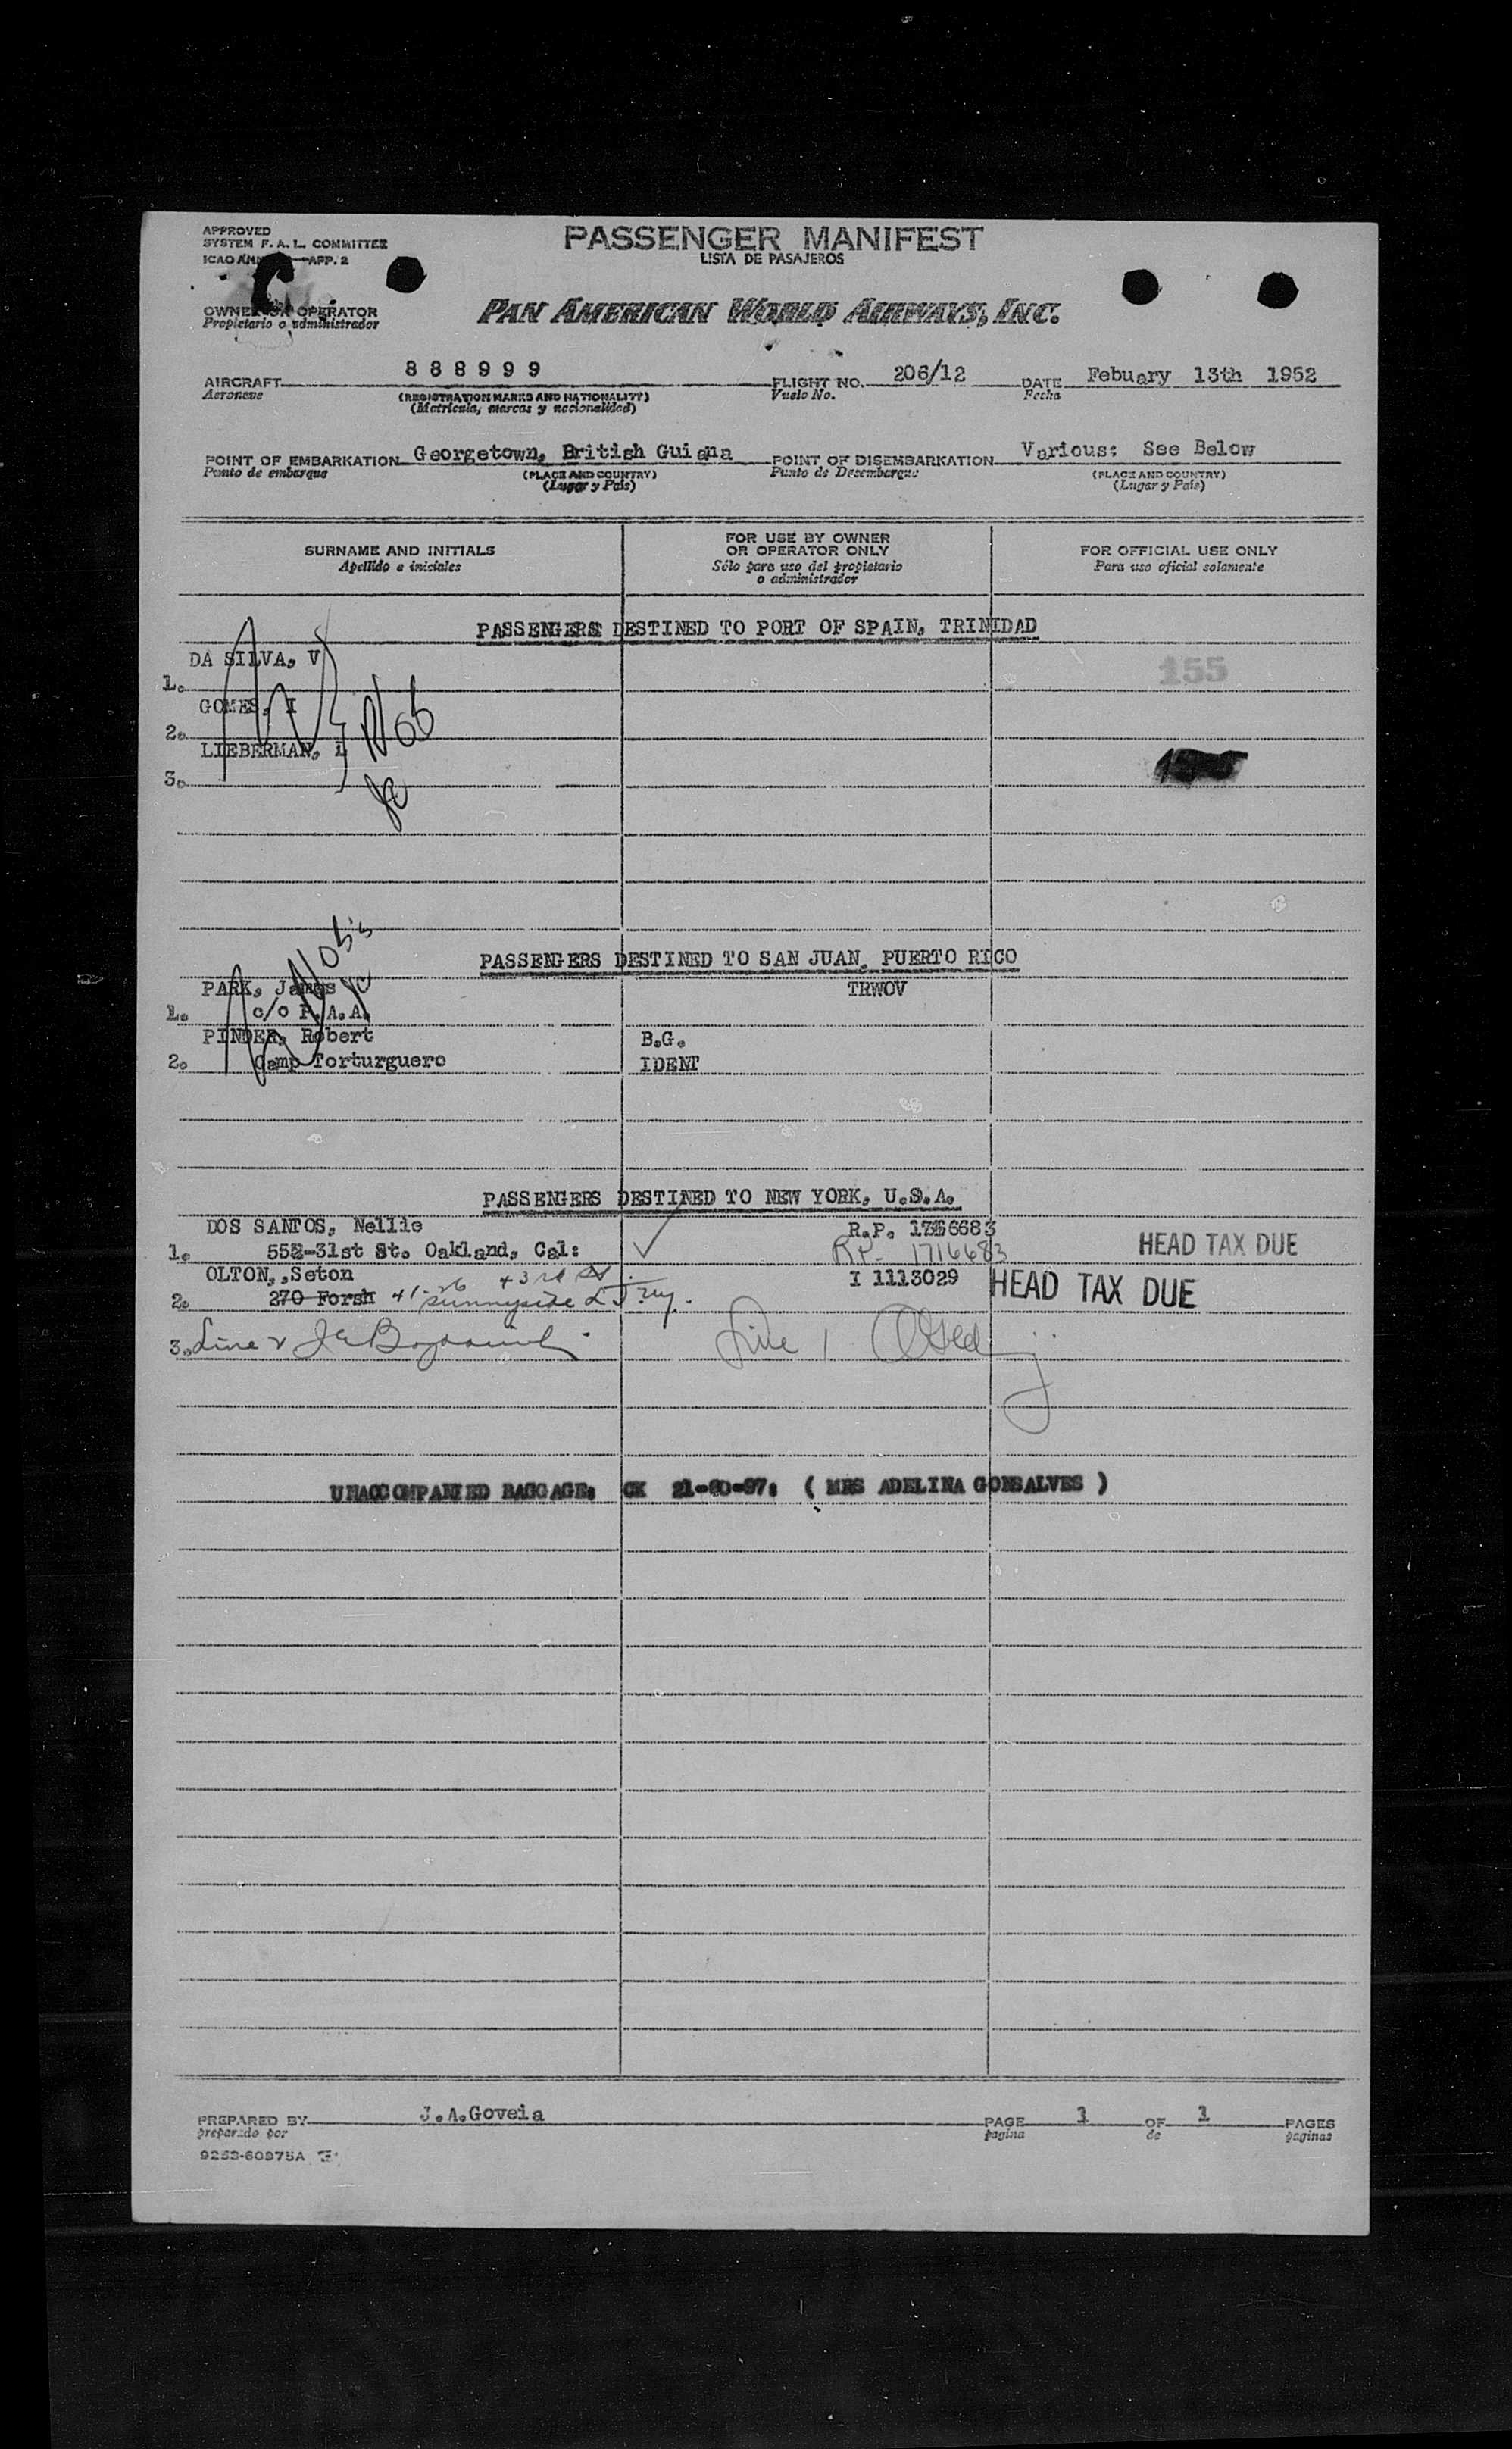 APPROVED
SYSTEM F. A. L. COMMITTEE
ICAO APP. 2
PASSENGER MANIFEST
LISTA DE PASAJEROS
OWNER OR OPERATOR
Propietario o administrador
PAN AMERICAN WORLD AIRWAYS, INC.
AIRCRAFT 888999 FLIGHT NO. 206/12 DATE Febuary 13th 1952
Aeronave (REGISTRATION MARKS AND NATIONALITY) Vuelo No. Fecha
(Matrícula, marcas y nacionalidad)
POINT OF EMBARKATION Georgetown, British Guiana POINT OF DISEMBARKATION Various: See Below
Punto de embarque (PLACE AND COUNTRY) Punto de Desembarque (PLACE AND COUNTRY)
(Lugar y País) (Lugar y País)
SURNAME AND INITIALS FOR USE BY OWNER OR OPERATOR ONLY FOR OFFICIAL USE ONLY
Apellido e iniciales Sólo para uso del propietario o administrador Para uso oficial solamente
PASSENGERS DESTINED TO PORT OF SPAIN, TRINIDAD
DA SILVA, V
1. 155
GOMES, I
2.
LIEBERMAN, L
3.
PASSENGERS DESTINED TO SAN JUAN, PUERTO RICO
PARK, James TRWOV
1. c/o P.A.A.
PINDER, Robert B.G.
2. Camp Torturguero IDENT
PASSENGERS DESTINED TO NEW YORK, U.S.A.
DOS SANTOS, Nellie R.P.
1. 31st St. Oakland, Cal: RP- 1716683 HEAD TAX DUE
OLTON,,Seton I 1113029 HEAD TAX DUE
2. 270 Forsh 41-26 43rd St.
Sunnyside
3. Line 2 Line 1
UNACCOMPANIED BAGGAGE: CK ( MRS ADELINA GONSALVES )
PREPARED BY J.A.Goveia PAGE 1 OF 1 PAGES
preparado por pagina de paginas
9253-60975A